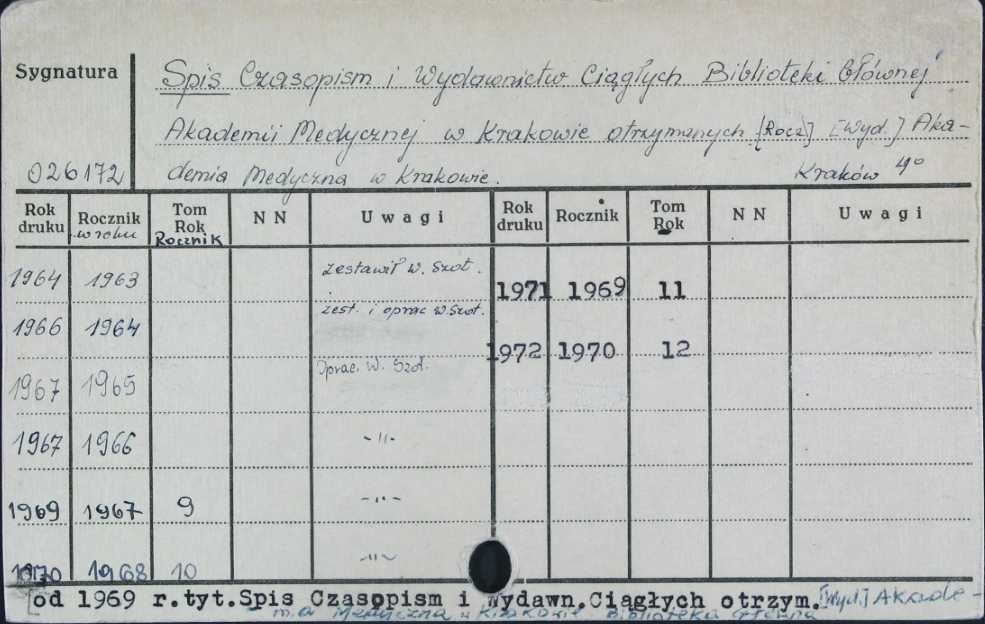 Sygnatura
Spis Czasopism i Wydawnictw Ciągłych Biblioteki Głównej
Akademii Medycznej w Krakowie otrzymanych [Rocz] [Wyd.] Aka-
026172 demia Medyczna w Krakowie. Kraków 4°
Rok druku Rocznik w roku Tom Rok Rocznik N N Uwagi Rok druku Rocznik Tom Rok N N Uwagi
1964 1963 zestawił W. Szot. 1971 1969 11
1966 1964 zest. i oprac W. Szot. 1972 1970 12
1967 1965 Oprac. W. Szot.
1967 1966 -"-
1969 1967 9 -"-
1970 1968 10 -"-
od 1969 r.tyt.Spis Czasopism i Wydawn.Ciągłych otrzym. [Wyd.] Akade-
mia Medyczna w Krakowie. Biblioteka Główna